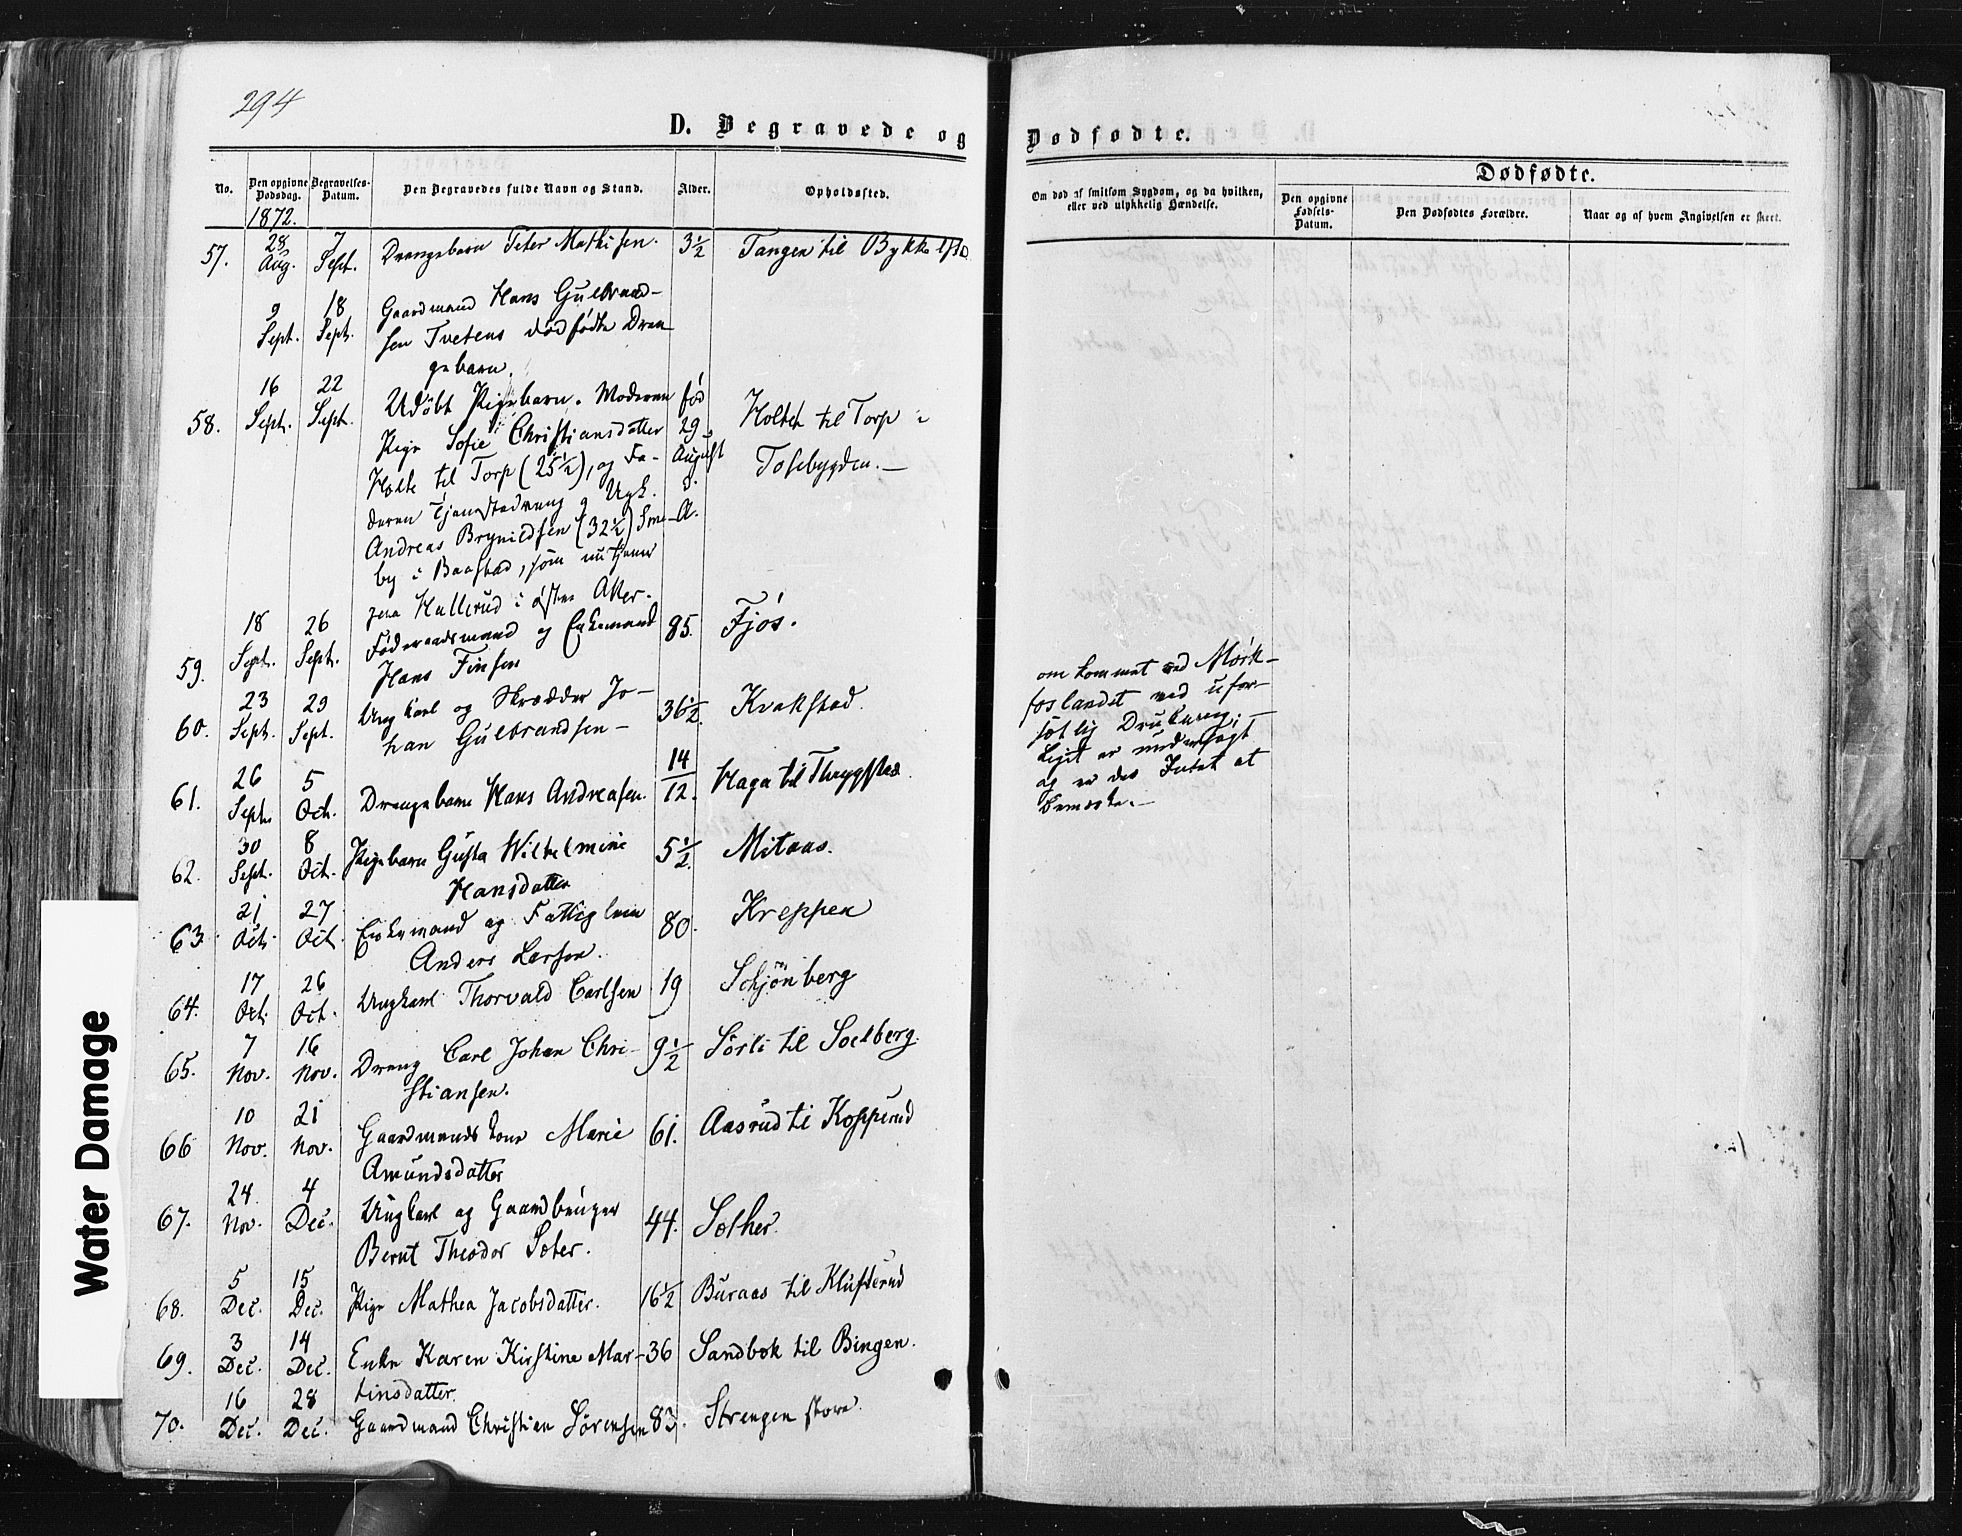 294
D. Begravede og
Dødfødte.
No.
Den opgivne Dødsdag.
Begravelses-Datum.
Den Begravedes fulde Navn og Stand.
Alder.
Opholdssted.
Om død af smitsom Sygdom, og da hvilken, eller ved ulykkelig Hændelse.
Dødfødte.
Den opgivne Fødsels-Datum.
Den Dødfødtes Forældre.
Naar og af hvem Angivelsen er skeet.
1872.
57. 28 Aug. 7 Sept. Drengebarn Peter Mathisen. 3½ Tangen til
9 Sept. 18 Sept. Gaardmand Hans Gulbrand-
sen Tvetens dødfødte Dren
gebarn.
58. 16 Sept. 22 Sept. Udøbt Pigebarn. Moderen fød
Pige Sofie Christiansdatter 29 Holtet til Torp i
Holte til Torp (25½), og Fa- August Tosebygden.—
deren Tjenestedreng og Ugk. d.
Andreas Brynildsen (32½) Sme- A.
by i Baastad, som nu tjener
paa Hallerud i østre Aker.
59. 18 Sept. 26 Sept. Føderaadsmand og Enkemand 85. Fjøs.
Hans Finsen
60. 23 Sept. 29 Sept. Ungkarl og Skrædder Jo- 36½. Kvakstad.
han Gulbrandsen —
om kommet ved Mørk-
foslandet ved ufor-
Liget er undersøgt
og er des Intet at
bemærke.—
61. 26 Sept. 5 Oct. Drengebarn Hans Andreasen. 14/12. Haga til Thrygstad
62. 30 Sept. 8 Oct. Pigebarn Gusta Wilhelmine 5½. Mitaas.
Hansdatter
63. 21 Oct. 27 Oct. Enkemand og Fattiglem 80. Kreppen
Anders Larsen.
64. 17 Oct. 26 Oct. Ungkarl Thorvald Carlsen 19 Schjønberg
65. 7 Nov. 16 Nov. Dreng Carl Johan Chri- 9½ Sørli til Solberg.
stiansen.
66 10 Nov. 21 Nov. Gaardmands kone Marie 61. Aasrud til Kopperud
Amundsdatter
67. 24. Nov. 4 Dec. Ungkarl og Gaardbruger 44. Sother.
Bernt Theodor Soter.
68. 5 Dec. 15 Dec. Pige Mathea Jacobsdatter. 16½ Buraas til Klufterud
69. 3 Dec. 14 Dec. Enke Karen Kirstine Mar- 36 Sandbok til Bingen.
tinsdatter.
70. 16 Dec. 28 Dec. Gaardmand Christian Sørensen 83. Strengen store.
Water Damage